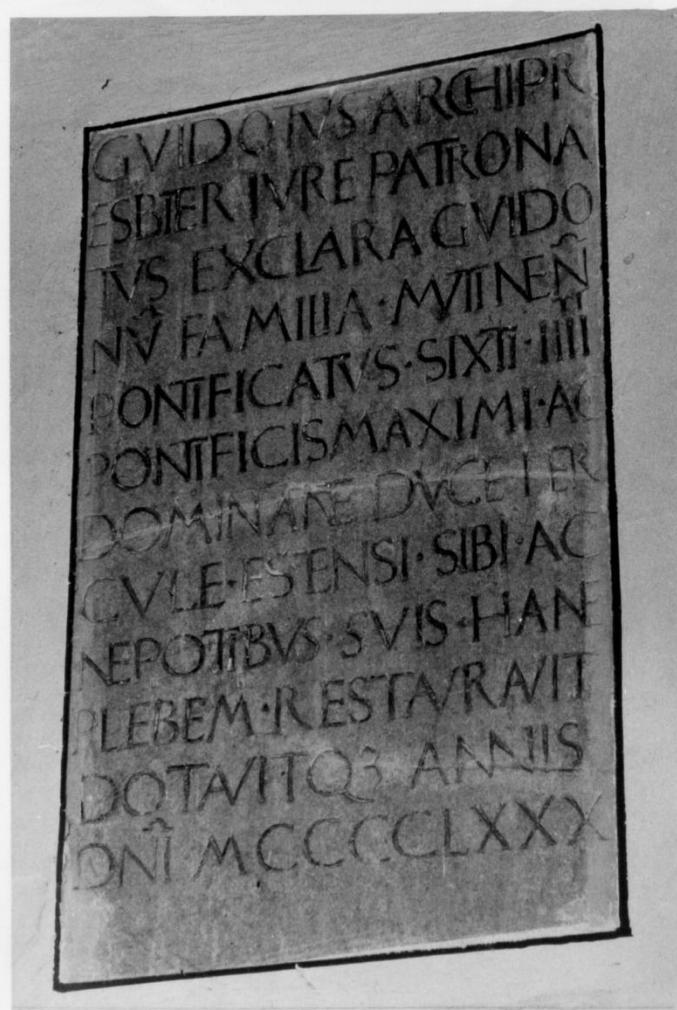 GVIDOTVS ARCHIPR
ESBTER IVRE PATRONA
TVS EXCLARA GVIDO
NV̂ FAMILIA · MVTINEN̂
PONTIFICATVS · SIXTI · IIII
PONTIFICIS MAXIMI · AC
DOMINARE DVCE HER
CVLE · ESTENSI · SIBI · AC
NEPOTIBVS · SVIS · HANE
PLEBEM · RESTAVRAVIT
DOTAVITQ3 ANNIS
DN̂I MCCCCLXXX